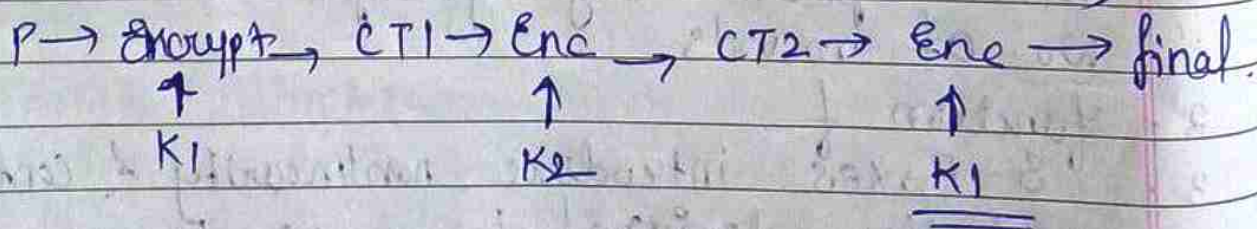 P → Encrypt → CT1 → Enc → CT2 → Enc → final.
↑ ↑ ↑
K1 K2 K1